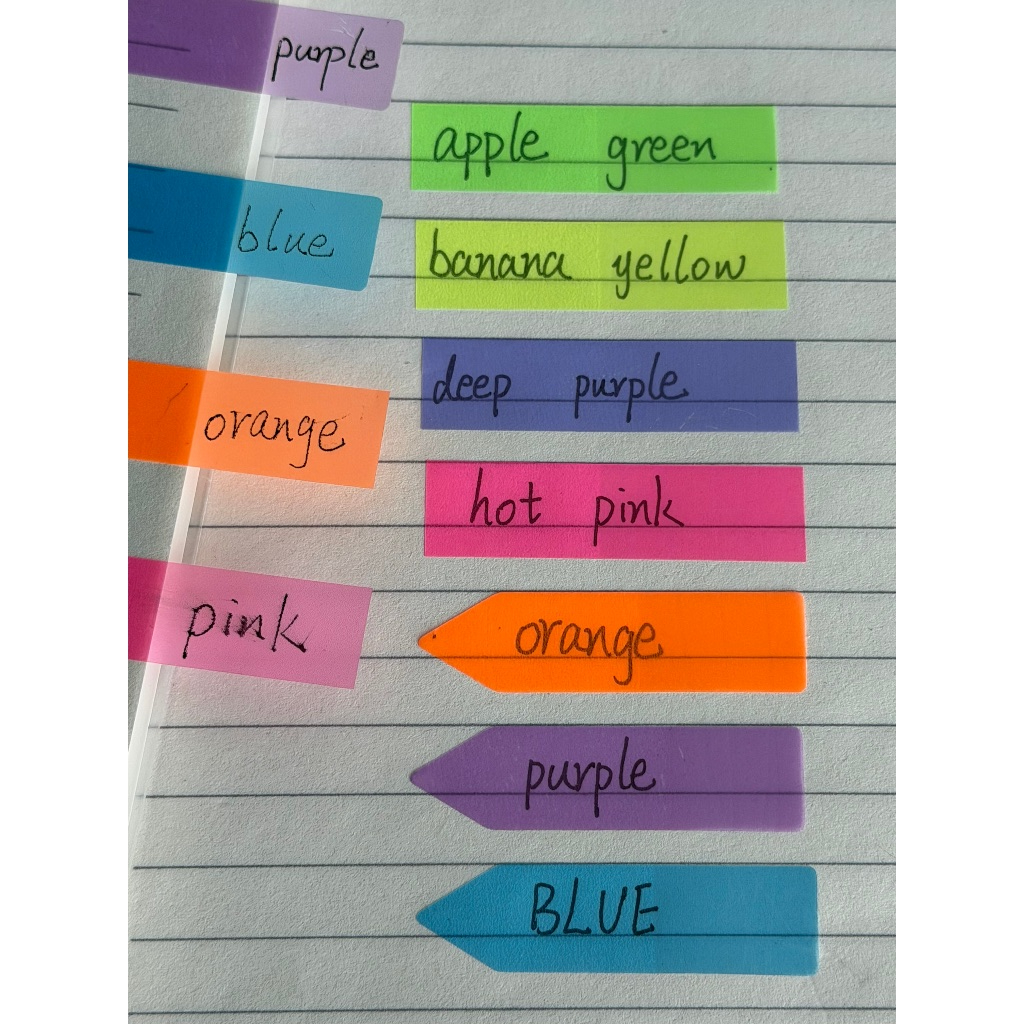 purple
blue
orange
pink
apple green
banana yellow
deep purple
hot pink
orange
purple
BLUE